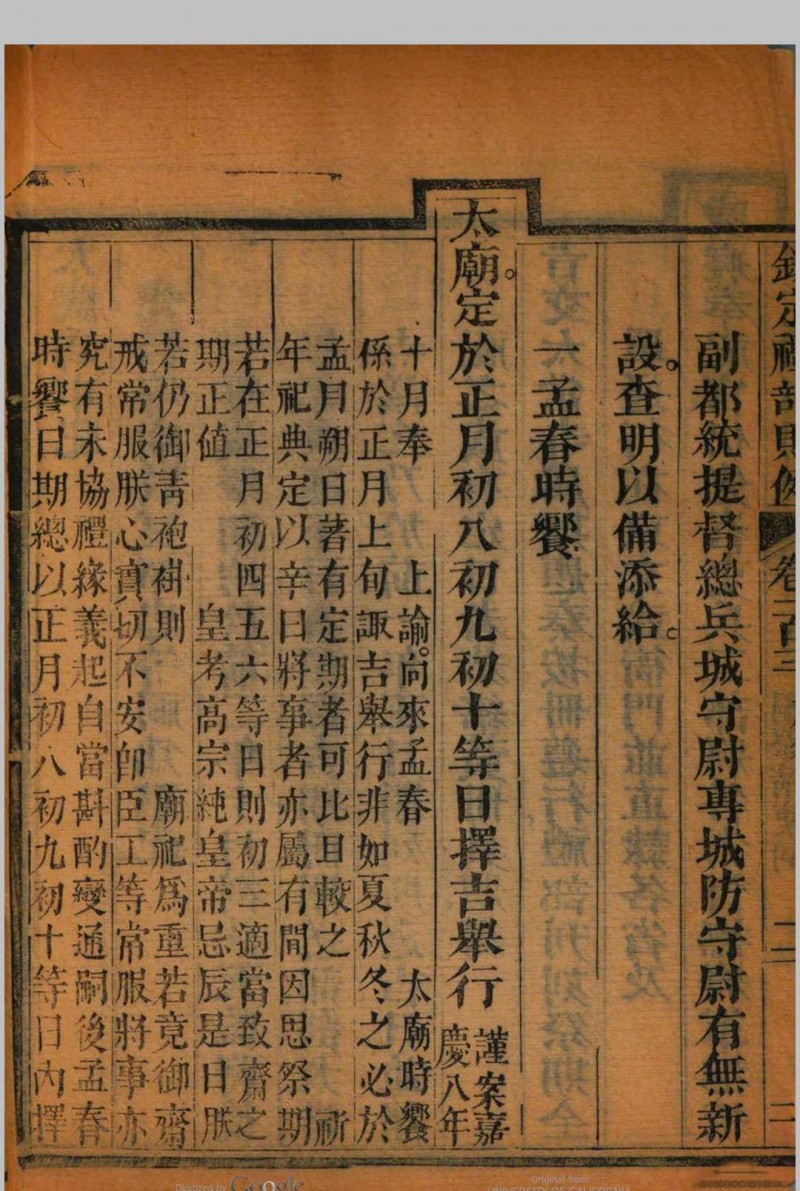 欽定禮部則例 卷一百三 二
副都統提督總兵城守尉專城防守尉有無新
設。查明以備添給。
一孟春時饗
太廟。定於正月初八初九初十等日擇吉舉行
謹案嘉
慶八年
十月奉 上諭。向來孟春 太廟時饗
係於正月上旬諏吉舉行非如夏秋冬之必於
孟月朔日著有定期者可比且較之 祈
年祀典定以辛日將事者亦屬有間因思祭期
若在正月初四五六等日則初三適當致齋之
期正值 皇考高宗純皇帝忌辰是日朕
若仍御青袍褂則 廟祀為重若竟御齋
戒常服朕心實切不安卽臣工等常服將事亦
究有未協禮緣義起自當斟酌變通嗣後孟春
時饗日期總以正月初八初九初十等日內擇
Digitized by Google
Original from
UNIVERSITY OF CALIFORNIA